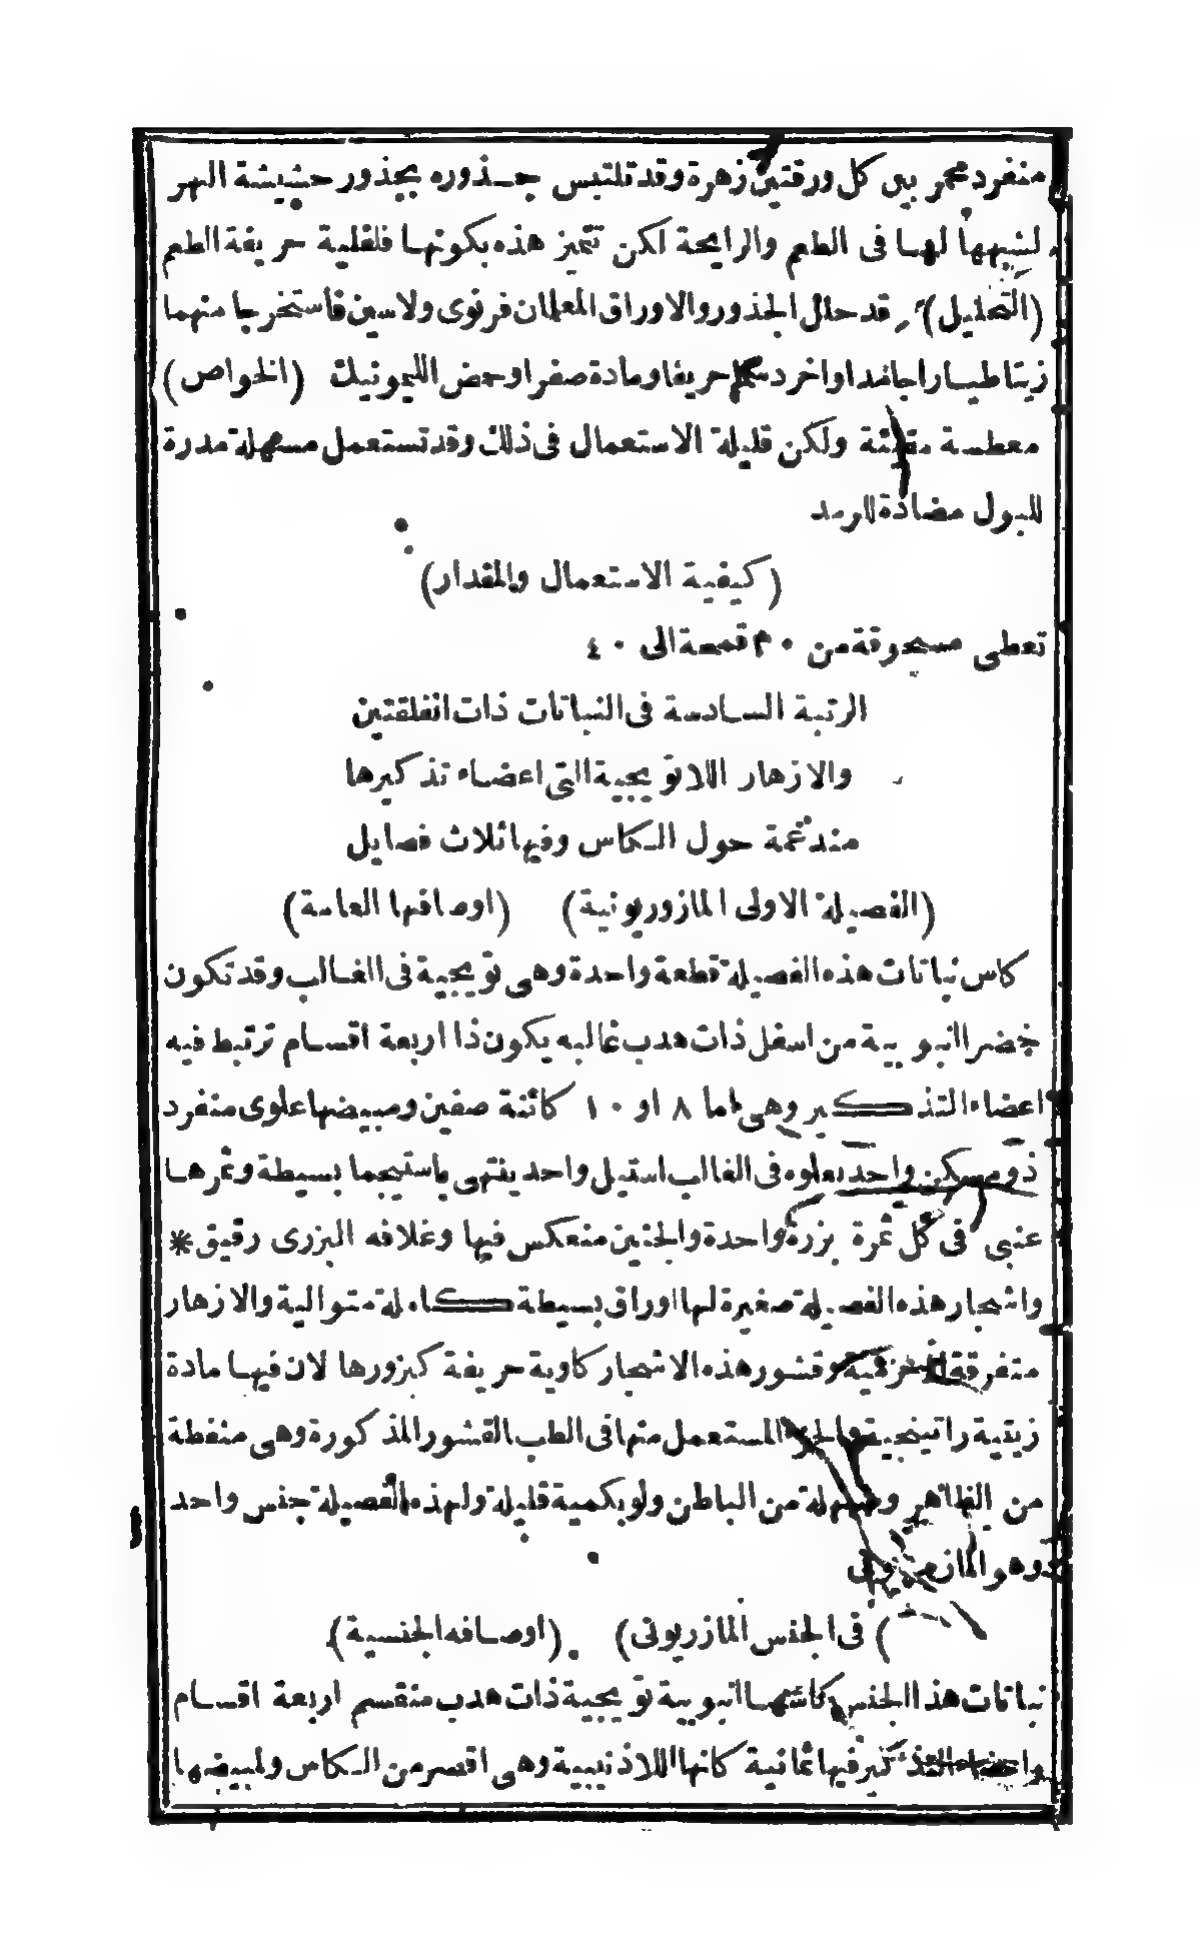 منفرد محمر بين كل ورقتين زهرة وقد تلتبس جــذوره بجذور حشيشة الهر
لشبهها لها فى الطعم والرايحة لكن تتميز هذه بكونها فلفلية حريفة الطعم
(التحليل) قد حلل الجذور والاوراق المعلمان فرنوى ولاسين فاستخرجا منهما
زيتا طيارا جامدا واخر دسما حريفا ومادة صفرا وحمض الليمونيك (الخواص)
معطسة مقيئة ولكن قليلة الاستعمال فى ذلك وقد تستعمل مسهلة مدرة
للبول مضادة للرمد
(كيفية الاستعمال والمقدار)
تعطى مسحوقة من ٣٠ قمحة الى ٤٠
الرتبة السادسة فى النباتات ذات الفلقتين
والازهار اللاتويجية التى اعضاء تذكيرها
مندغمة حول الكاس وفيها ثلاث فصايل
(الفصيلة الاولى المازوريونية) (اوصافها العامة)
كاس نباتات هذه الفصيلة قطعة واحدة وهى تويجية فى الغالب وقد تكون
خضرا انبوبية من اسفل ذات هدب غالبه يكون ذا اربعة اقسام ترتبط فيه
اعضاء التذكير وهى اما ٨ او ١٠ كائنة صفين ومبيضها علوى منفرد
ذو مسكن واحد يعلوه فى الغالب استيل واحد ينتهى باستيجما بسيطة وثمرها
عنبى فى كل ثمرة بزرة واحدة والجنين منعكس فيها وغلافه البزرى رقيق *
واشجار هذه الفصيلة صغيرة لها اوراق بسيطة كاملة متوالية والازهار
متفرقة وقشور هذه الاشجار كاوية حريفة كبزورها لان فيها مادة
زيتية راتينجية والجزء المستعمل منها فى الطب القشور المذكورة وهى منفطة
من الظاهر ومسهلة من الباطن ولو بكمية قليلة ولهذه الفصيلة جنس واحد
وهو المازريونى
(فى الجنس المازريونى) (اوصافه الجنسية)
نباتات هذا الجنس كاسها انبوبية تويجية ذات هدب منقسم اربعة اقسام
واعضاء التذكير فيها ثمانية كانها اللاذنيبية وهى اقصر من الكاس ولمبيضها